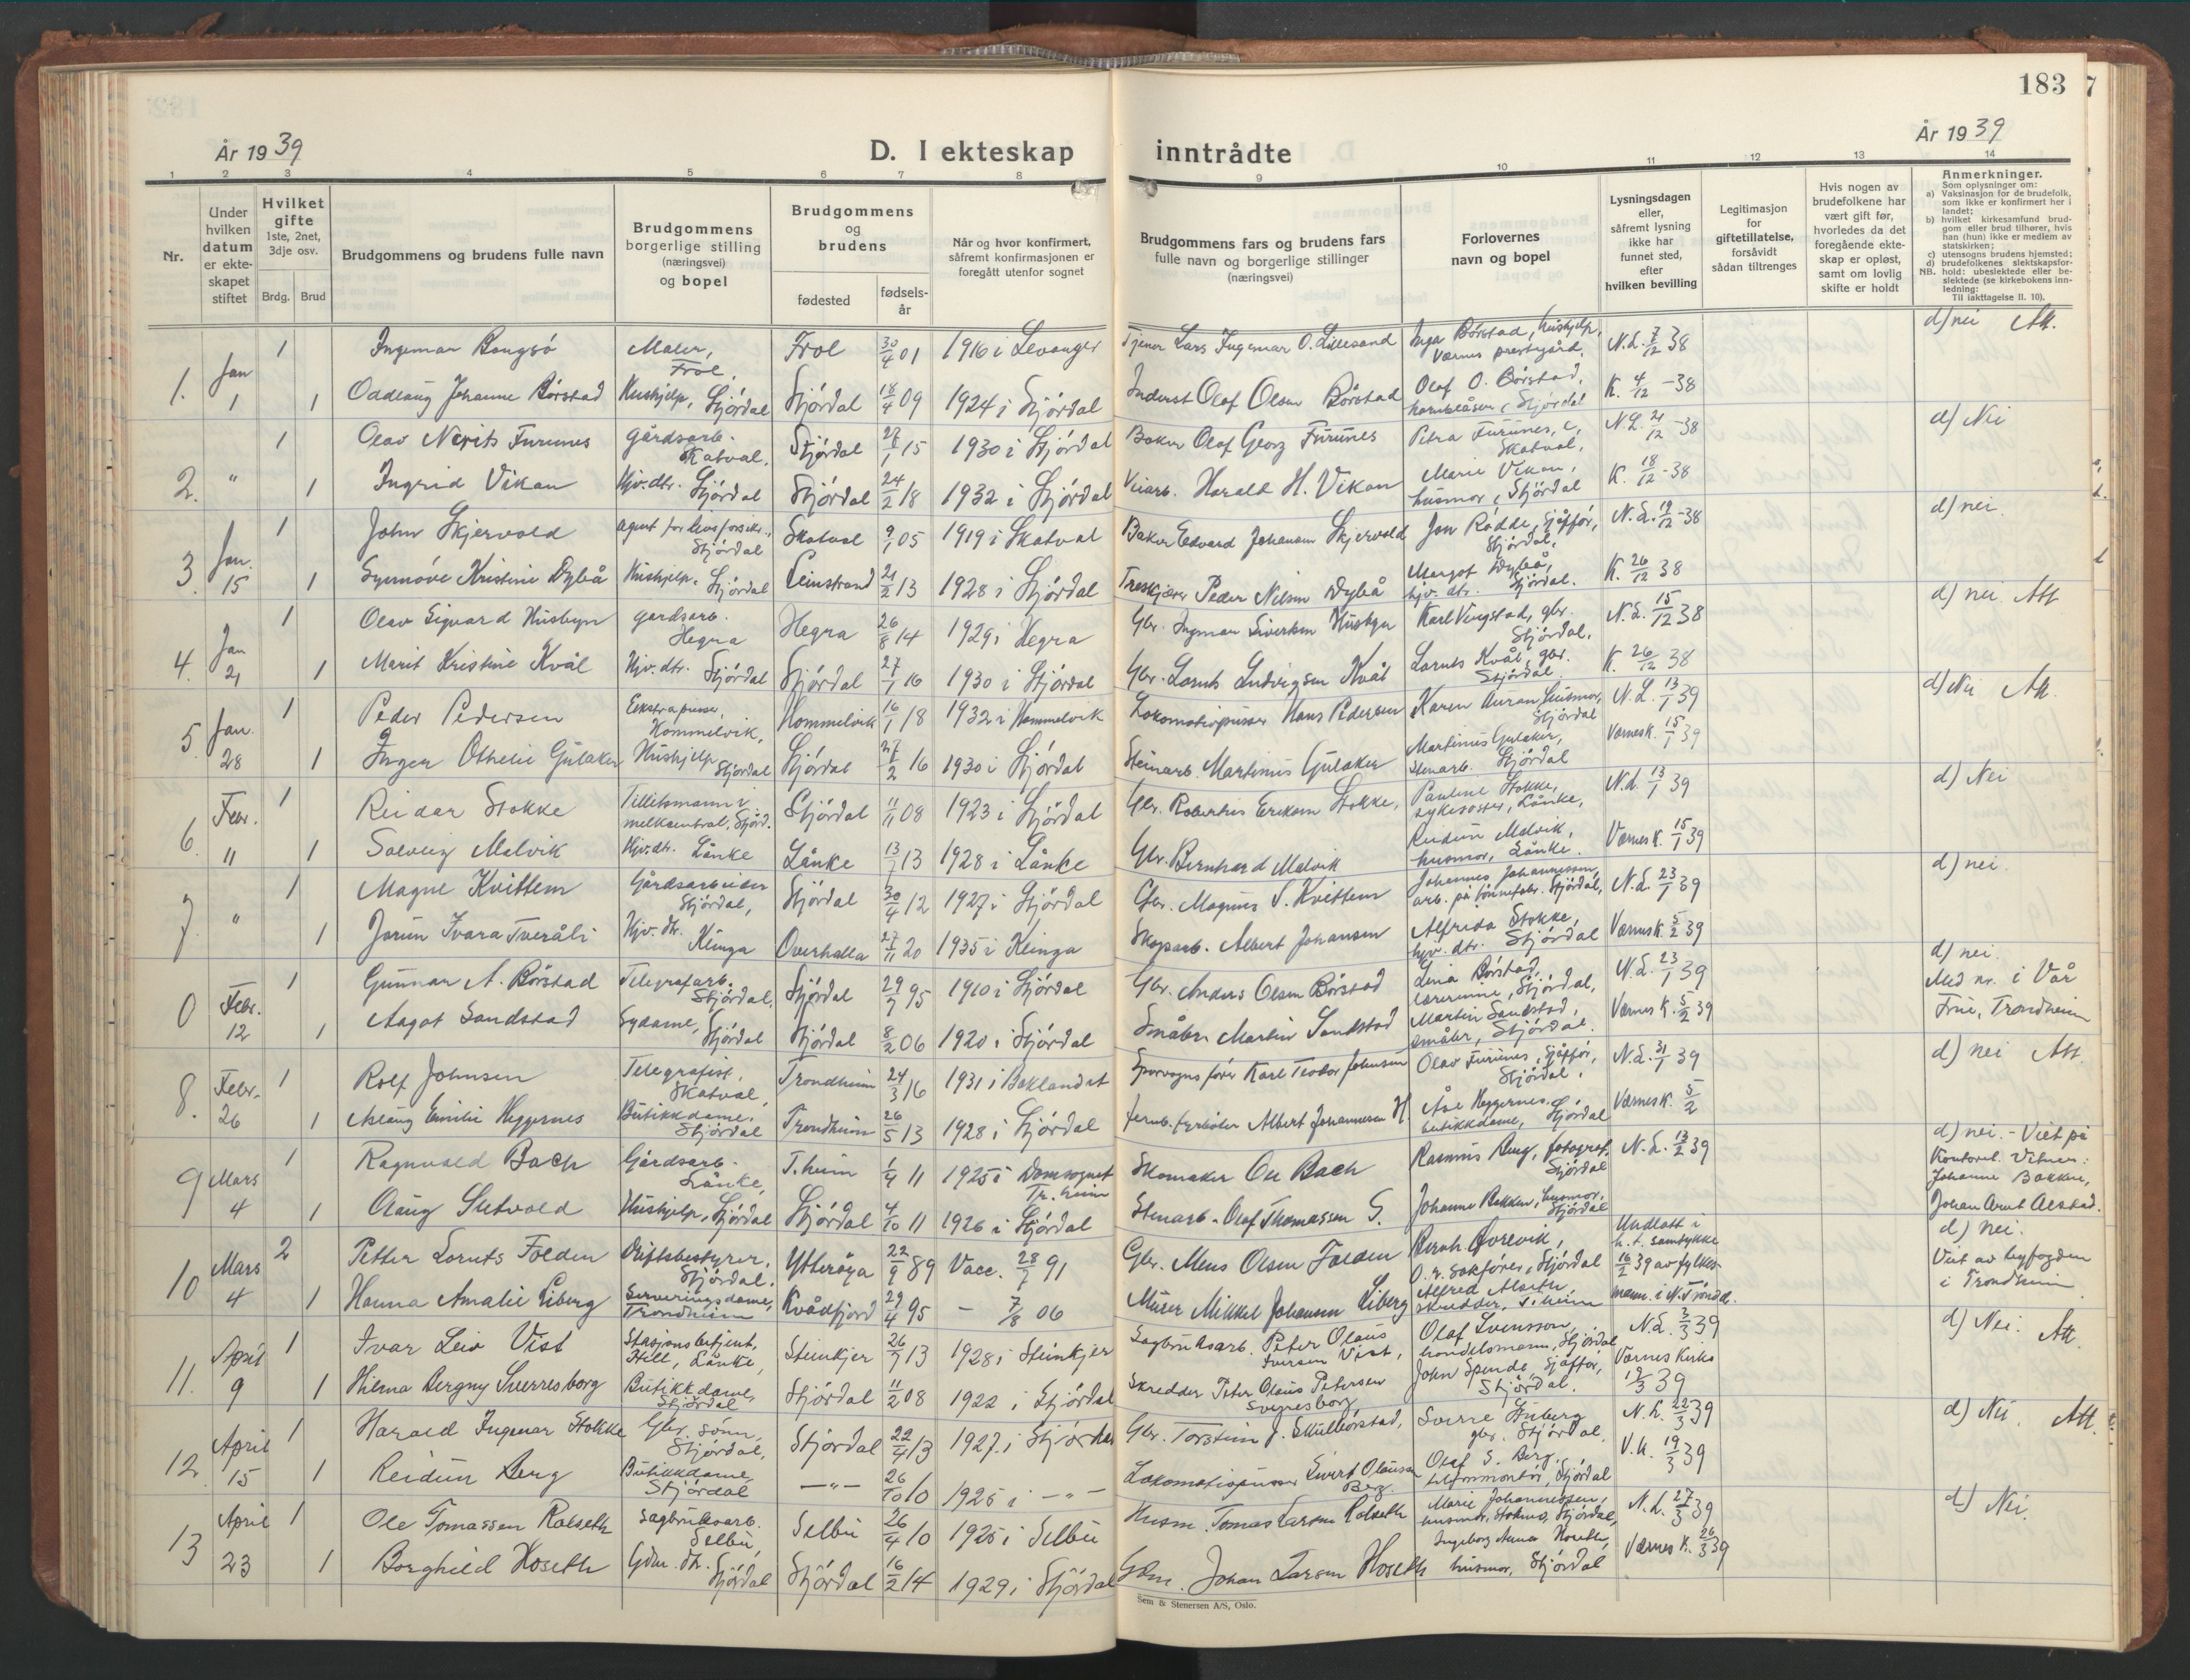 183
År 1939
D. I ekteskap inntrådte
År 1939
1 2 3 4 5 6 7 8 9 10 11 12 13 14
Nr.
Under
hvilken
datum
er ekte-
skapet
stiftet
Hvilket
gifte
1ste, 2net,
3dje osv.
Brdg. Brud
Brudgommens og brudens fulle navn
Brudgommens
borgerlige stilling
(næringsvei)
og bopel
Brudgommens
og
brudens
fødested
fødsels-
år
Når og hvor konfirmert,
såfremt konfirmasjonen er
foregått utenfor sognet
Brudgommens fars og brudens fars
fulle navn og borgerlige stillinger
(næringsvei)
Forlovernes
navn og bopel
Lysningsdagen
eller,
såfremt lysning
ikke har
funnet sted,
efter
hvilken bevilling
Legitimasjon
for
giftetillatelse,
forsåvidt
sådan tiltrenges
Hvis nogen av
brudefolkene har
vært gift før,
hvorledes da det
foregående ekte-
skap er opløst,
samt om lovlig
skifte er holdt
Anmerkninger.
Som oplysninger om:
a) Vaksinasjon for de brudefolk,
som ikke er konfirmert her i
landet;
b) hvilket kirkesamfund brud-
gom eller brud tilhører, hvis
han (hun) ikke er medlem av
statskirken;
c) utensogns brudens hjemsted;
d) brudefolkenes slektskapsfor-
hold: ubeslektede eller be-
slektede (se kirkebokens inn-
ledning:
NB. Til iakttagelse II. 10).
1 Ingemar Bangsö Maler, Frol. Frol 30/4 01 1916 i Levanger Tjener Lars Ingemar O. Lillesand Inga Börstad, hushjelp, Værnes prestegård. N.L. 7/12 38 d) nei Att.
1. Jan 1 1 Oddlaug Johanne Börstad Hushjelp, Stjördal Stjördal 18/4 09 1924 i Stjördal Inderst Olaf Olsen Börstad Olaf O. Börstad, Stjördal K. 4/12 -38
1 Olav Nerits Furunes gårdsarb. Skatval. Stjördal 27/1 15 1930 i Stjördal Baker Olaf Georg Furunes Petra Furunes, Skatval, N.L. 21/12 -38 d) Nei
2. " 1 Ingrid Vikan Hjv. dtr. Stjördal Stjördal 24/2 18 1932 i Stjördal Veiarb. Harald H. Vikan Marie Vikan, husmor, Stjördal K. 18/12 -38
1 John Skjervold agent for livsforsikr., Stjördal Skatval 9/1 05 1919 i Skatval Baker Edvard Johansen Skjervold Jon Rödde, Sjåffør, Stjördal. N.L. 19/12 -38 d) nei.
3. Jan. 15 1 Synnöve Kristine Dybå Hushjelp, Stjördal Leinstrand 21/2 13 1928 i Stjördal Treskjærer Peder Nilsen Dybå Margot Dybå, hjv. dtr. Stjördal. K. 26/12 38
1 Olav Sigvard Husbyn gårdsarb. Hegra Hegra 26/8 14 1929 i Hegra Gbr. Ingmar Sivertsen Husbyn Karl Vingstad, gbr. Stjördal. N.L. 15/12 38 d) nei Att
4. Jan 21 1 Marit Kristine Kvål Hjv. dtr. Stjördal Stjördal 27/1 16 1930 i Stjördal Gbr. Lornts Ludvigsen Kvål Lornts Kvål, gbr. Stjördal. K. 26/12 38
1 Peder Pedersen Ekstrapusser, Hommelvik, Hommelvik 16/1 18 1932 i Hommelvik Lokomotivpusser Hans Pedersen Karen Auran, husmor, Stjördal N.L. 13/1 39 d) Nei Att.
5. Jan. 28 1 Inger Othelie Gulaker Hushjelp Stjördal Stjördal 27/2 16 1930 i Stjördal Steinarb. Martinus Gulaker Martinus Gulaker, Stenarb. Stjördal Værnes K. 15/1 39
1 Reidar Stokke Tillitsmann i melkcentral, Stjörd. Stjördal 11/11 08 1923 i Stjördal Gbr. Robertus Eriksen Stokke, Pauline Stokke, sykesöster, Lånke, N.L. 13/1 39 d) Nei
6. Febr. 11 1 Solveig Malvik Hjv. dtr. Lånke Lånke 13/1 13 1928 i Lånke Gbr. Bernhard Malvik Reidun Malvik, husmor, Lånke. Værnes K. 15/1 39
1 Magne Kvittem Gårdsarbeider Stjördal, Stjördal 30/4 12 1927 i Stjördal Gbr. Magnus S. Kvittem Johannes Johannessen, arb. på tönnefabr. Stjördal, N.L. 23/1 39 d) nei.
7. " 1 Jorun Ivara Tveråli Hjv. dtr. Klinga Overhalla 27/11 20 1935 i Klinga Skogarb. Albert Johansen Alfrida Stokke, hjv. dtr. Stjördal Værnes K. 5/2 39
1 Gunnar A. Börstad Telegrafarb. Stjördal, Stjördal 29/7 95 1910 i Stjördal Gbr. Anders Olsen Börstad Lina Börstad, lærerinne, Stjördal, N.L. 23/1 39 d) nei. Med nr. i Vår
0 Febr. 12 1 Aagot Sandstad Sydame, Stjördal Stjördal 8/2 06 1920 i Stjördal Småbr. Martin Sandstad Martin Sandstad, småbr, Stjördal. Værnes K. 5/2 39 Frue, Trondheim
1 Rolf Johnsen Telegrafist, Skatval, Trondheim 24/3 16 1931 i Baklandet Sporvognsfører Karl Teodor Johnsen Olav Furunes, Sjåffør, Stjördal. N.L. 31/1 39 d) nei Att.
8. Febr. 26 1 Aslaug Emilie Heggernes Butikkdame, Stjördal Trondheim 26/5 13 1928 i Stjördal Jernb. fyrböter Albert Johannesen H. Åse Heggernes, butikkdame, Stjördal Værnes K. 5/2
1 Ragnvald Bach Gårdsarb. Lånke, T.heim 1/9 11 1925 i Domsognet Tr. heim Skomaker Ole Bach Rasmus Berg, fotograf, Stjördal N.L. 13/2 39 d) nei. - Viet på Kontoret. Vitner:
9 Mars 4 1 Olaug Sletvold Hushjelp, Stjördal Stjördal 4/10 11 1926 i Stjördal Stenarb. Olaf Thomassen S. Johanne Bakken, husmor, Stjördal Johanne Bakken, Johan Arnt Aelstad.
2 Petter Lornts Folden Driftsbestyrer, Stjördal. Ytteröya 22/9 89 Vacc. 28/7 91 Gbr. Mens Olsen Folden Bernh. Övrevik, O.r. sakförer, Stjördal Undlatt i h.t. samtykke d) Nei. Viet av byfogden
10 Mars 4 1 Hanna Amalie Liberg Serveringsdame, Trondheim Kvædfjord 29/4 95 - 7/8 06 Murer Mikkel Johansen Liberg Alfred skredder, T.heim 16/2 39 av fylkes- mann. i N. Trönd. i Trondheim
1 Ivar Leiv Vist Stasjonsbetjent, Hell, Lånke, Steinkjer 26/7 13 1928 i Steinkjer Sagbruksarb. Peter Olaus Iversen Vist, Olaf Svensson, handelsmann, Stjördal N.L. 3/3 39 d) Nei. Att.
11. April 9 1 Hilma Bergny Sverresborg Butikkdame, Stjördal Stjördal 11/2 08 1922 i Stjördal Skredder Peter Olaus Petersen Sverresborg, John Spende, Sjåffør, Stjördal. Værnes Kirke 12/3 39
1 Harald Ingemar Stokke Gbr. sönn, Stjördal, Stjördal 22/4 13 1927 i Stjördal Gbr. Torstein J. Skulbörstad, Sverre gbr. Stjördal. N.L. 22/3 39 d) Nei. Att.
12. April 15 1 Reidun Berg Butikkdame, Stjördal —"— 26/10 10 1925 i —"— Lokomotivpusser Sivert Olausen Berg Olaf S. Berg, telefonmontör, Stjördal V.K. 19/3 39
1 Ole Tomassen Rolseth Sagbruksarb. Selbu, Selbu 26/4 10 1925 i Selbu Husm. Tomas Larsen Rolseth Marie Johannessen, husmor, Stokmo, Stjördal, N.L. 27/3 39 d) Nei.
13 April 23 1 Borghild Hoseth Gdm. dtr. Stjördal Stjördal 16/2 14 1929 i Stjördal Gdm. Johan Larsen Hoseth Ingeborg Anna Hoseth, husmor, Stjördal Værnes K. 26/3 39
Sem & Stenersen A/S, Oslo.